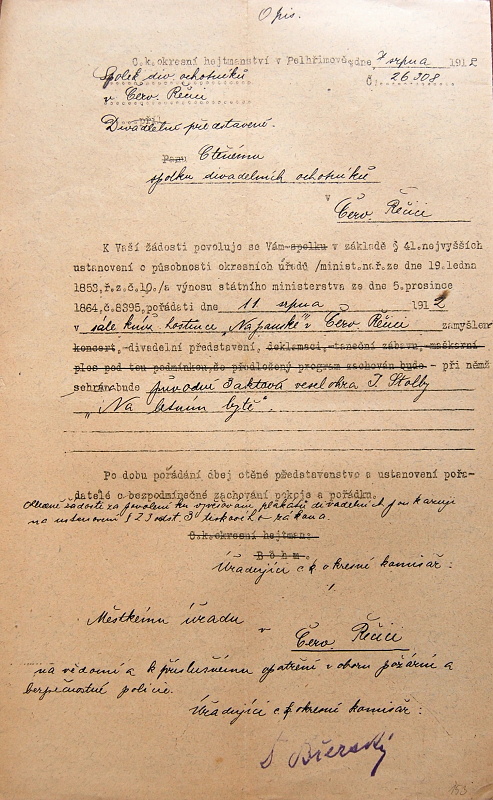 Opis.
C.k.okresní hejtmanství v Pelhřimově,dne 7 srpna 1912
Č. 26308
Spolek div. ochotníků
v Červ. Řečici
Divadelní představení.
Panu Ctěnému
spolku divadelních ochotníků
v
Červ. Řečici
K Vaší žádosti povoluje se Vám spolku v základě § 41.nejvyšších
ustanovení o působnosti okresních úřadů /minist.nař.ze dne 19.ledna
1853,ř.z.č.10./a výnosu státního ministerstva ze dne 5.prosince
1864,č.8395,pořádati dne 11 srpna 1912
v sále hostince „Na panské" v Červ. Řečici zamýšlen
koncert, divadelní představení, deklamaci, taneční zábavu, maškarní
ples pod tou podmínkou,že předložený program zachován bude - při němž
sehrán bude původní 3aktová veselohra J. Štolby
„Na letním bytě".
Po dobu pořádání dbej ctěné představenstvo a ustanovení pořa-
datelé o bezpodmínečné zachování pokoje a pořádku.
žádosti za povolení ku vyvěšování plakátů divadelních poukazuji
na ustanovení § 23 odst. 3 tiskového zákona.
C.k.okresní hejtman:
Böhm.
Úřadující c k okresní komisař:
Městkému úřadu
v
Červ. Řečici
na vědomí a k příslušnému opatření v oboru požární a
bezpečnostné policie.
Úřadující c k okresní komisař:
153